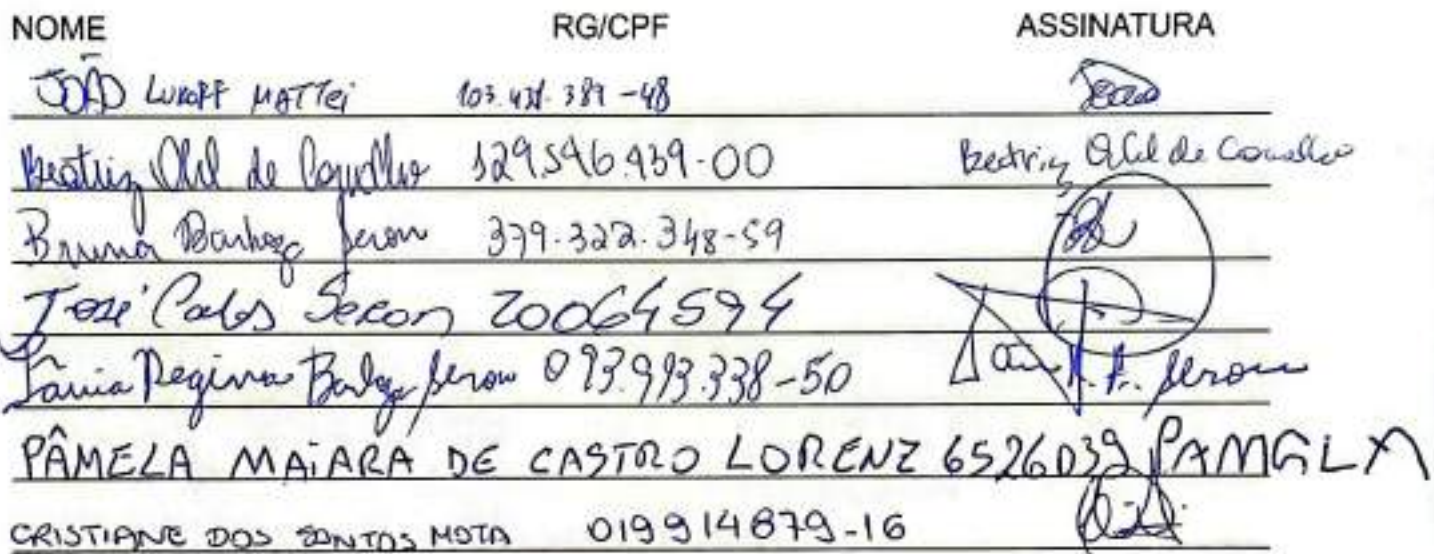 NOME RG/CPF ASSINATURA
JOÃO LUKOFF MATTEI 103.431.389-48 João
Beatriz de Carvalho 129.546.439-00 Beatriz de Carvalho
Bruna Barboza Seron 379.322.348-59
José Carlos Seron 20064594
Tânia Regina Barboza Seron 093.993.338-50 Tânia R. B. Seron
PÂMELA MAIARA DE CASTRO LORENZ 6526039 PAMELA
CRISTIANE DOS SANTOS MOTA 019914879-16